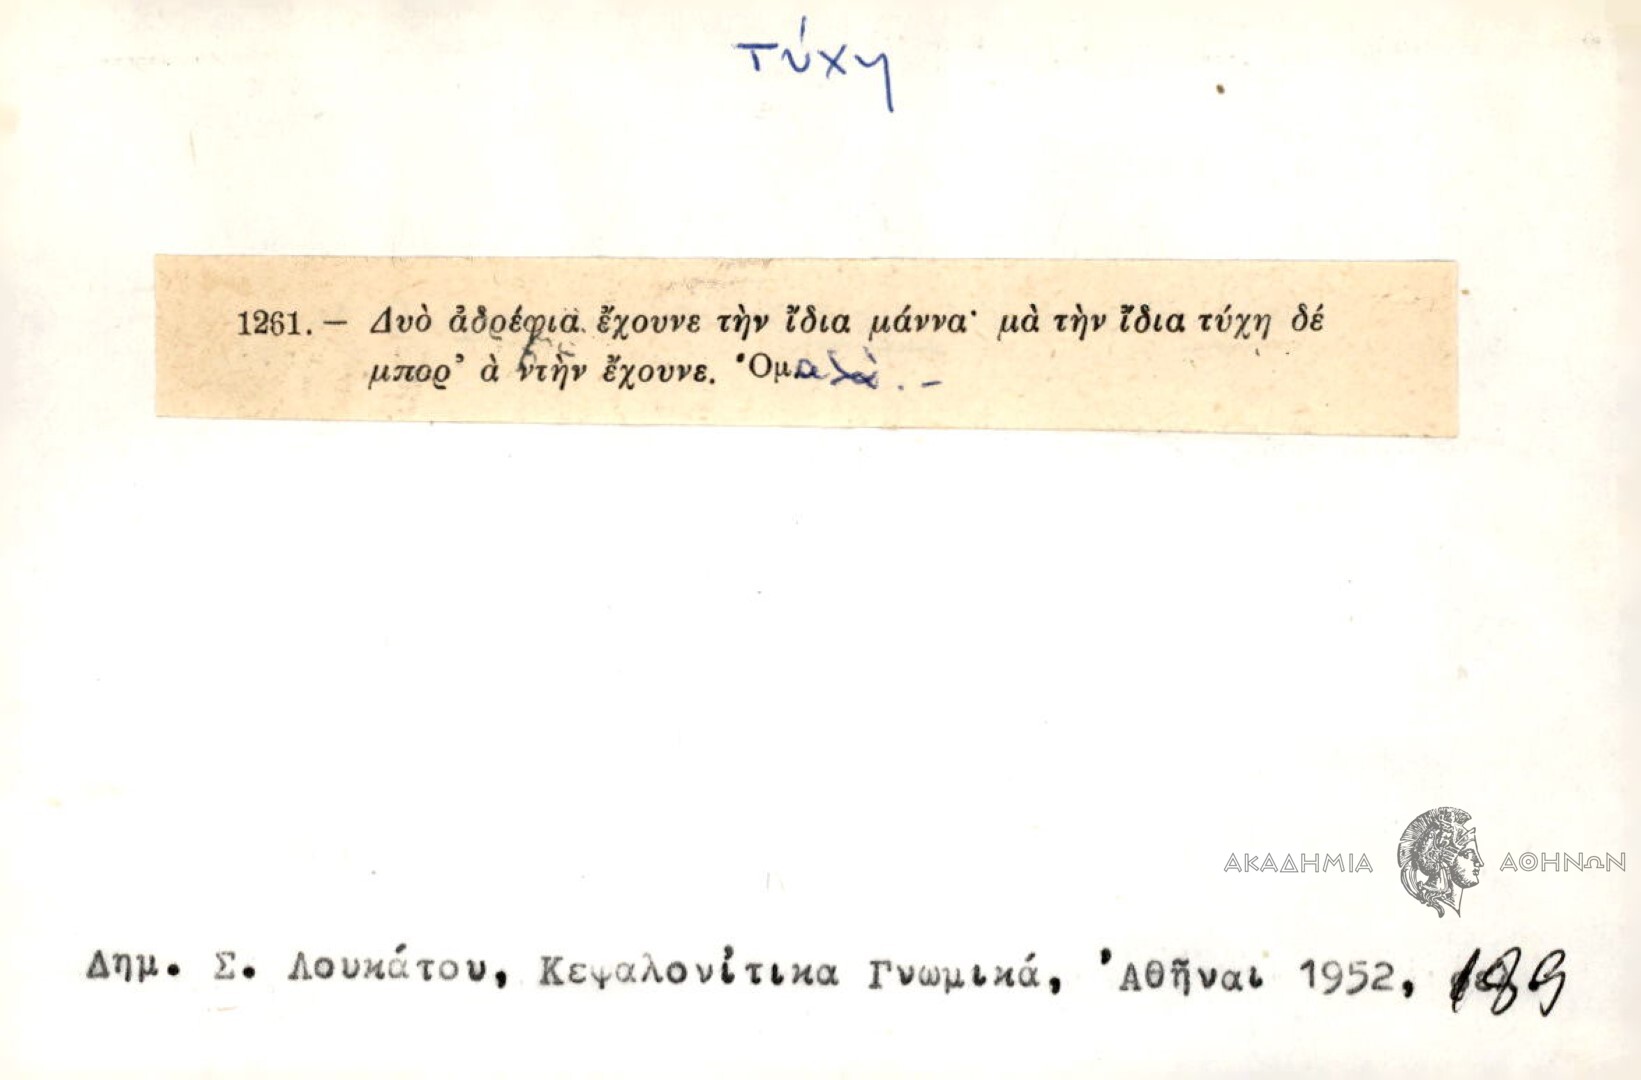 τύχη
1261. — Δυὸ ἀδρέφια ἔχουνε τὴν ἴδια μάννα· μὰ τὴν ἴδια τύχη δέ
μπορ' ἀ ντὴν ἔχουνε. Ὁμαλὰ. -
ΑΚΑΔΗΜΙΑ ΑΘΗΝΩΝ
Δημ. Σ. Λουκάτου, Κεφαλονίτικα Γνωμικά, Ἀθῆναι 1952, 189